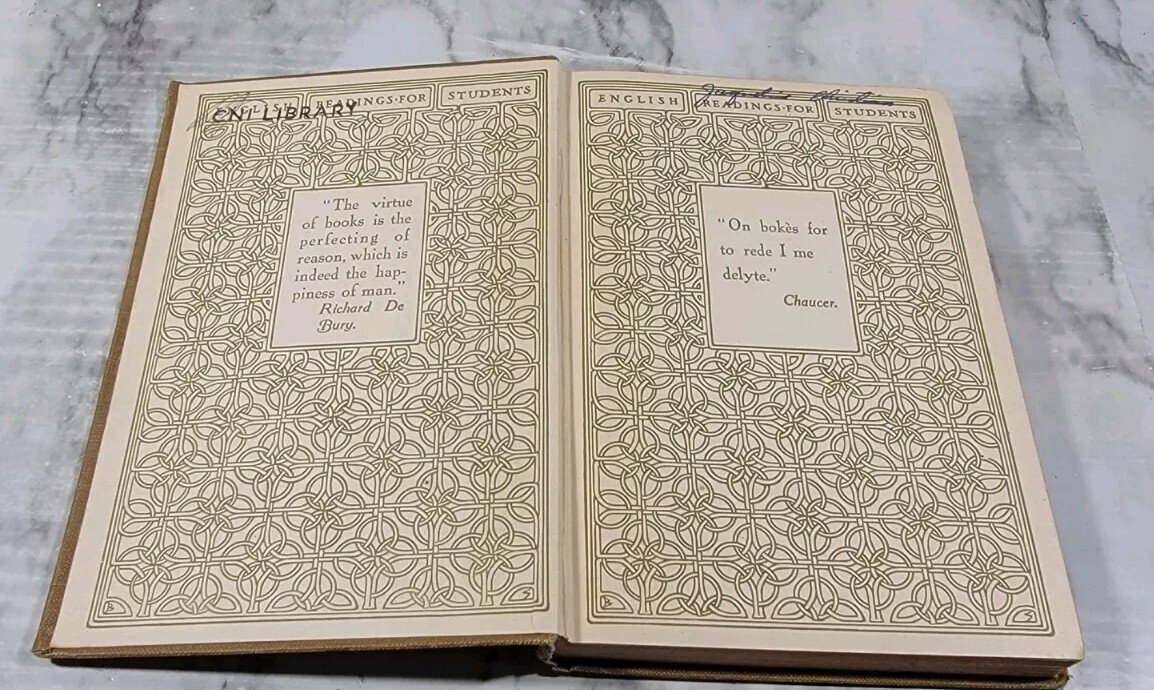 ENGLISH READINGS·FOR STUDENTS
CNI LIBRARY
"The virtue
of books is the
perfecting of
reason, which is
indeed the hap-
piness of man."
Richard De
Bury.
B S
ENGLISH READINGS·FOR STUDENTS
"On bokès for
to rede I me
delyte."
Chaucer.
B S